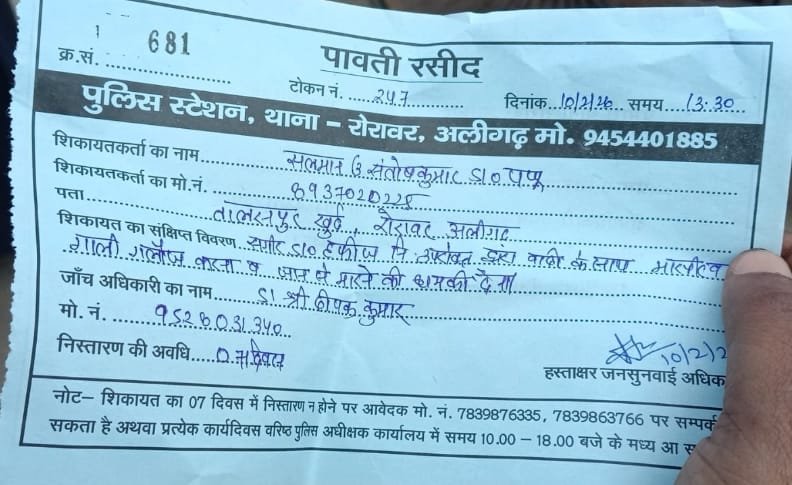 1
क्र.सं. 681
पावती रसीद
टोकन नं. 247 दिनांक 10/2/26 समय 13:30
पुलिस स्टेशन, थाना – रोरावर, अलीगढ़ मो. 9454401885
शिकायतकर्ता का नाम सलमान S/o पप्पू
शिकायतकर्ता का मो.नं. 8937020228
पता तालसपुर खुर्द, रोरावर अलीगढ
शिकायत का संक्षिप्त विवरण S/o हफीज नि. उपरोक्त द्वारा वादी के साथ मारपीट व
गाली गलौज करना व जान से मारने की धमकी देना
जाँच अधिकारी का नाम SI श्री दीपक कुमार
मो. नं. 9528031340
निस्तारण की अवधि 07 दिवस
10/2/2
हस्ताक्षर जनसुनवाई अधिक
नोट– शिकायत का 07 दिवस में निस्तारण न होने पर आवेदक मो. नं. 7839876335, 7839863766 पर सम्पर्क
सकता है अथवा प्रत्येक कार्यदिवस वरिष्ठ पुलिस अधीक्षक कार्यालय में समय 10.00 – 18.00 बजे के मध्य आ स